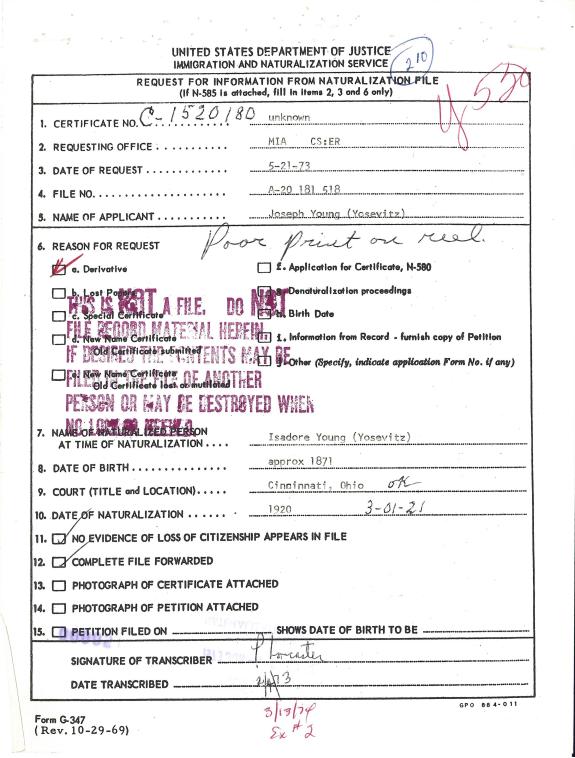 UNITED STATES DEPARTMENT OF JUSTICE
IMMIGRATION AND NATURALIZATION SERVICE
210
REQUEST FOR INFORMATION FROM NATURALIZATION FILE
(If N-585 is attached, fill in items 2, 3 and 6 only)
1. CERTIFICATE NO. C-1520180 unknown
2. REQUESTING OFFICE ........... MIA CS:ER
3. DATE OF REQUEST ............. 5-21-73
4. FILE NO. .................... A-20 181 518
5. NAME OF APPLICANT ........... Joseph Young (Yosevitz)
6. REASON FOR REQUEST Poor print on reel.
a. Derivative
f. Application for Certificate, N-580
b. Lost Papers
g. Denaturalization proceedings
c. Special Certificate
h. Birth Date
d. New Name Certificate
Old Certificate submitted
i. Information from Record - furnish copy of Petition
j. Other (Specify, indicate application Form No. if any)
e. New Name Certificate
Old Certificate lost or mutilated
THIS IS NOT A FILE. DO NOT
FILE RECORD MATERIAL HEREIN.
IF DESIRED THE CONTENTS MAY BE
FILED IN THE FILE OF ANOTHER
PERSON OR MAY BE DESTROYED WHEN
NO LONGER NEEDED
7. NAME OF NATURALIZED PERSON
AT TIME OF NATURALIZATION .... Isadore Young (Yosevitz)
8. DATE OF BIRTH ............... approx 1871
9. COURT (TITLE and LOCATION)..... Cincinnati, Ohio OK
10. DATE OF NATURALIZATION ...... 1920 3-01-21
11. NO EVIDENCE OF LOSS OF CITIZENSHIP APPEARS IN FILE
12. COMPLETE FILE FORWARDED
13. PHOTOGRAPH OF CERTIFICATE ATTACHED
14. PHOTOGRAPH OF PETITION ATTACHED
15. PETITION FILED ON SHOWS DATE OF BIRTH TO BE
SIGNATURE OF TRANSCRIBER
DATE TRANSCRIBED
GPO 884-011
Form G-347
(Rev. 10-29-69)
3/13/74
Ex # 2